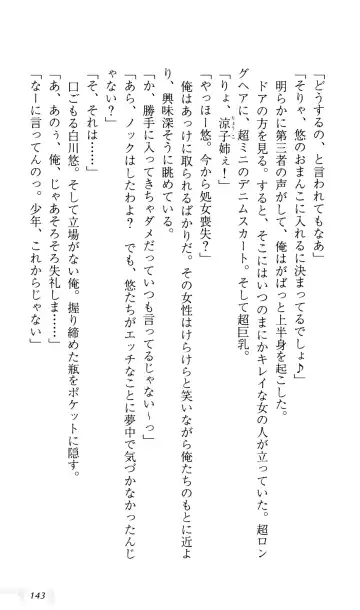 「どうするの、と言われてもなあ」
「そりゃ、悠のおまんこに入れるに決まってるでしょ♪」
明らかに第三者の声がして、俺はがばっと上半身を起こした。
ドアの方を見る。すると、そこにはいつのまにかキレイな女の人が立っていた。超ロン
グヘアに、超ミニのデニムスカート。そして超巨乳。
「りょ、涼子姉ぇ！」
「やっほー悠。今から処女喪失？」
俺はあっけに取られるばかりだ。その女性はけらけらと笑いながら俺たちのもとに近よ
り、興味深そうに眺めている。
「か、勝手に入ってきちゃダメだっていつも言ってるじゃない〜っ」
「あら、ノックはしたわよ？　でも、悠たちがエッチなことに夢中で気づかなかったんじ
ゃない？」
「そ、それは……」
口ごもる白川悠。そして立場がない俺。握り締めた瓶をポケットに隠す。
「あ、あのぅ、俺、じゃあそろそろ失礼しま……」
「なーに言ってんのっ。少年、これからじゃない」
143